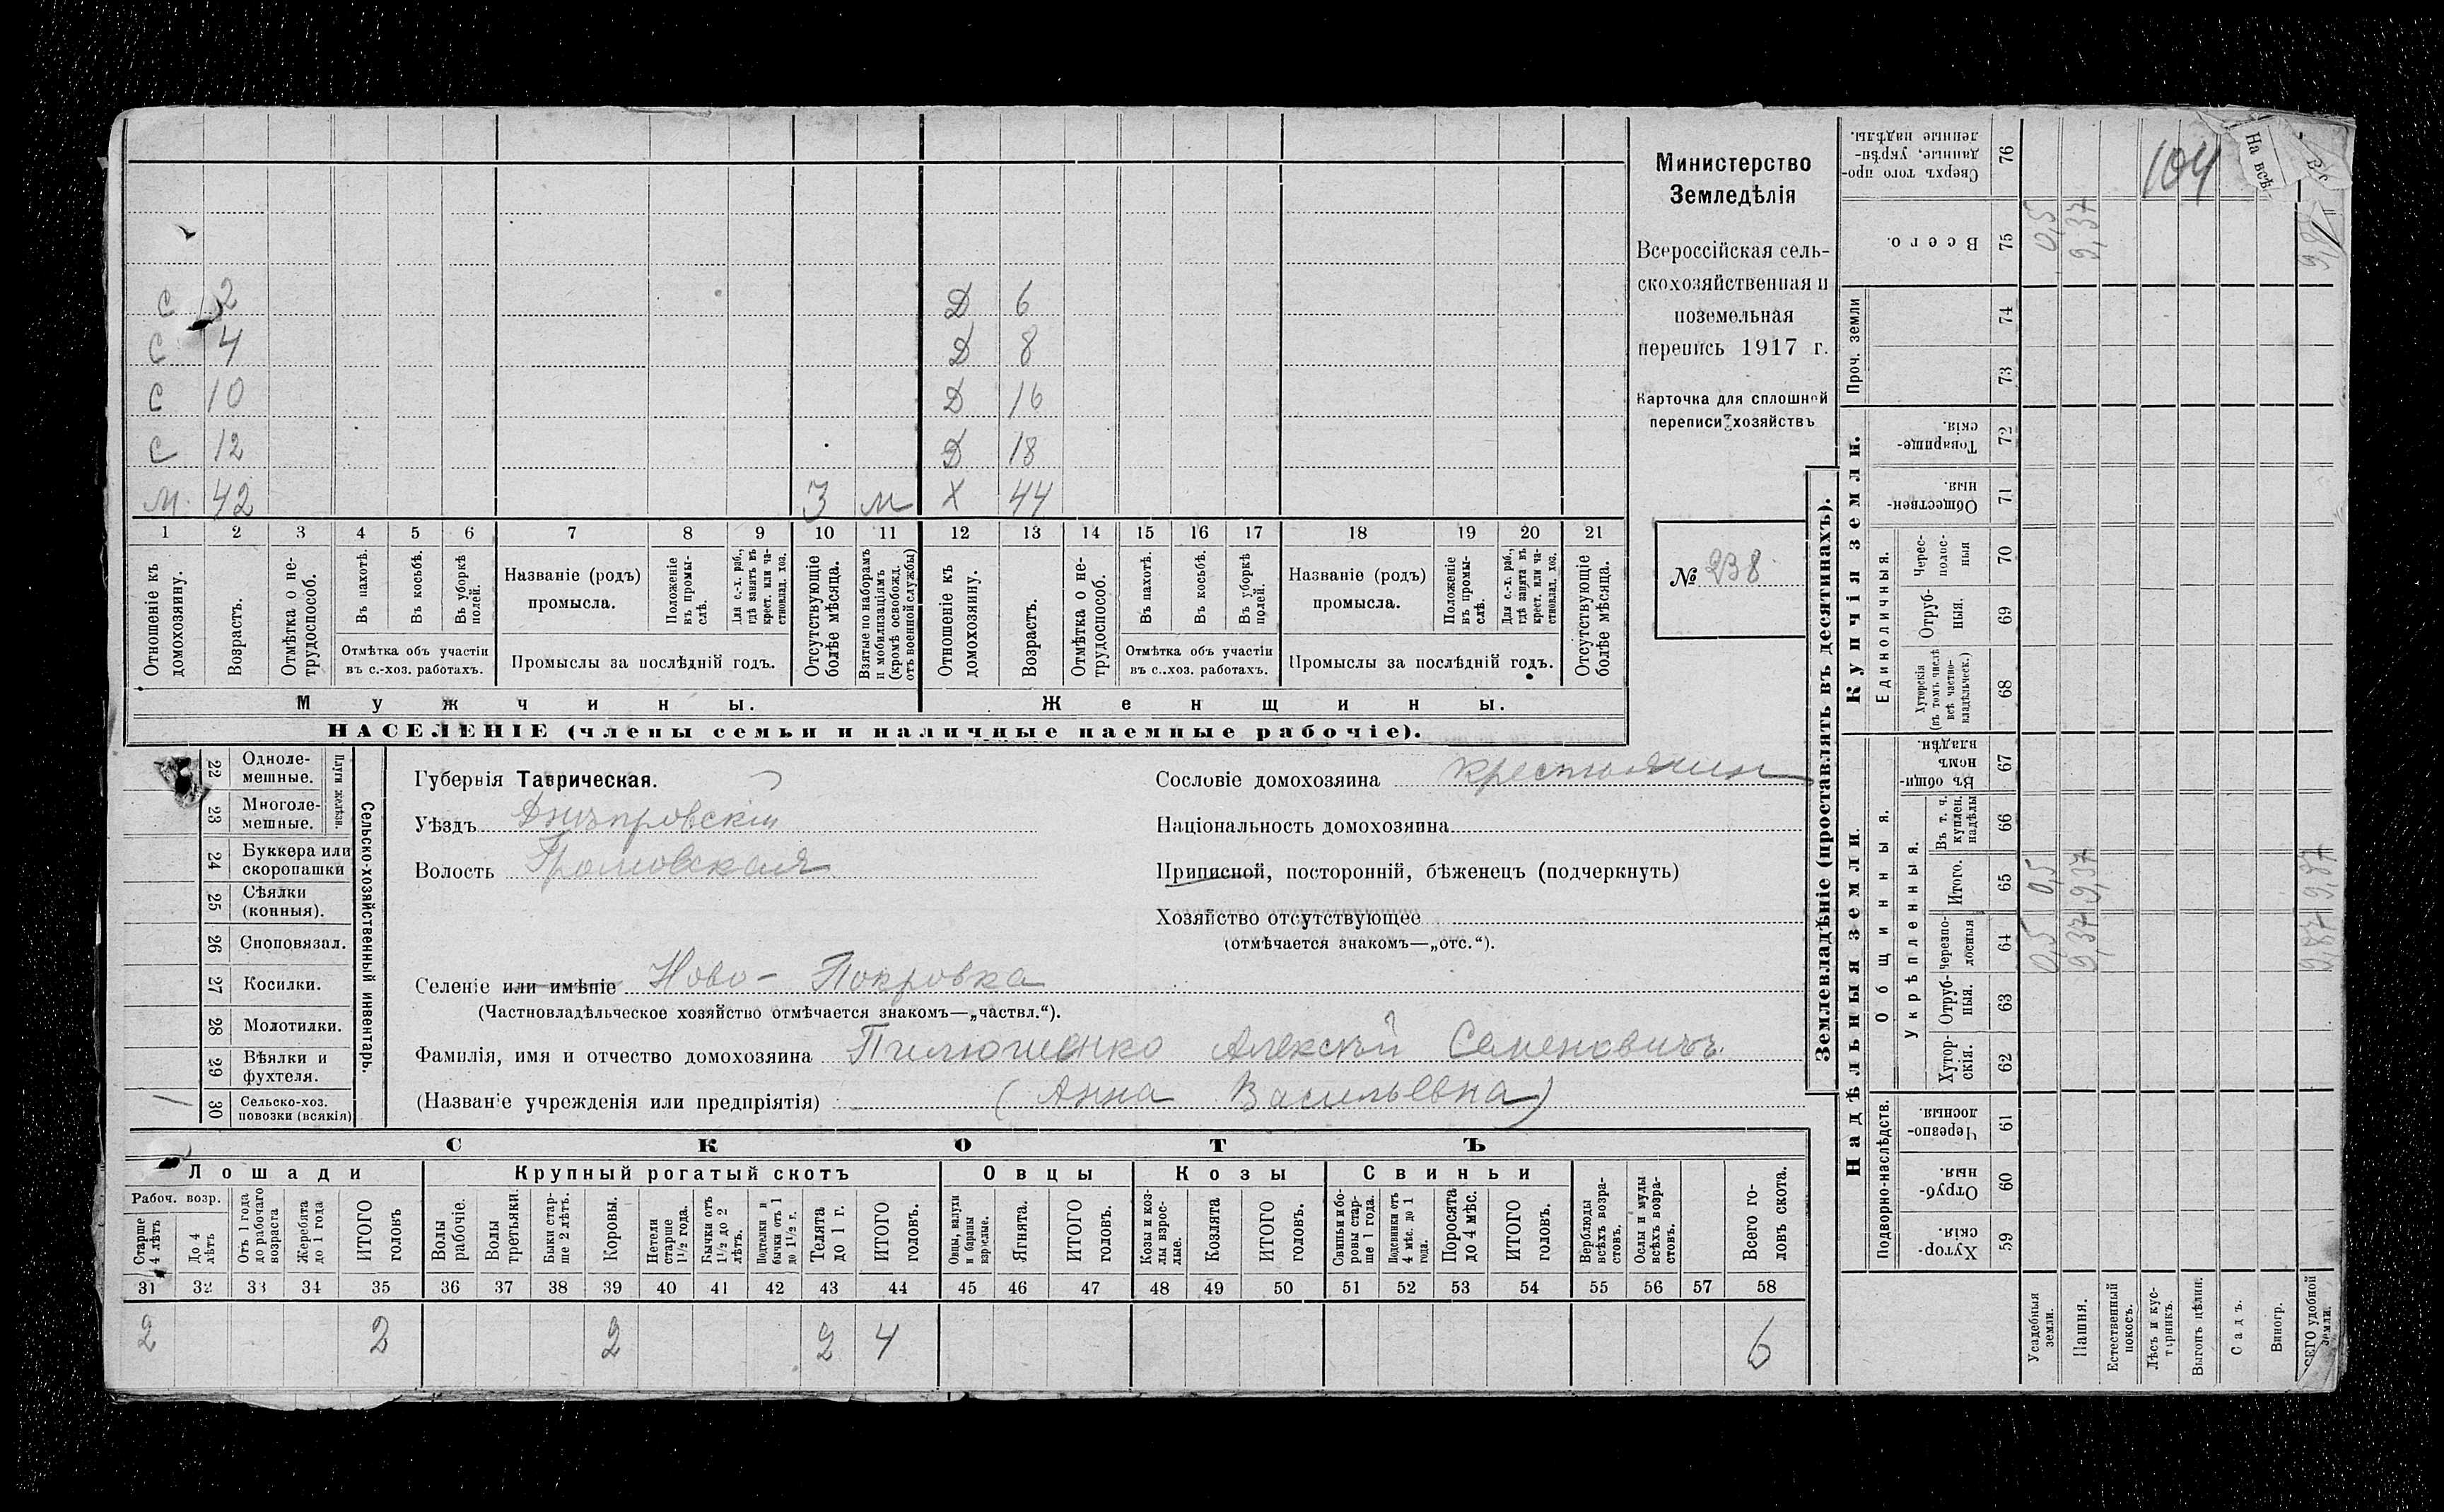 С 2 Д 6
С 4 Д 8
С 10 Д 16
С 12 Д 18
М 42 3 м Х 44
1 2 3 4 5 6 7 8 9 10 11 12 13 14 15 16 17 18 19 20 21
Отношеніе къ домохозяину.
Возрастъ.
Отмѣтка о не-трудоспособ.
Въ пахотѣ.
Въ косьбѣ.
Въ уборкѣ полей.
Отмѣтка объ участіи
въ с.-хоз. работахъ.
Названіе (родъ)
промысла.
Положеніе въ промы-слѣ.
Для с.-х. раб., гдѣ занятъ въ крест. или ча-стновлад. хоз.
Промыслы за послѣдній годъ.
Отсутствующіе болѣе мѣсяца.
Взятые по наборамъ и мобилизаціямъ (кромѣ освобожд. отъ военной службы)
Отношеніе къ домохозяину.
Возрастъ.
Отмѣтка о не-трудоспособ.
Въ пахотѣ.
Въ косьбѣ.
Въ уборкѣ полей.
Отмѣтка объ участіи
въ с.-хоз. работахъ.
Названіе (родъ)
промысла.
Положеніе въ промы-слѣ.
Для с.-х. раб., гдѣ занята въ крест. или ча-стновлад. хоз.
Промыслы за послѣдній годъ.
Отсутствующіе болѣе мѣсяца.
Мужчины. Женщины.
НАСЕЛЕНІЕ (члены семьи и наличные наемные рабочіе).
Министерство
Земледѣлія
Всероссійская сель-
скохозяйственная и
поземельная
перепись 1917 г.
Карточка для сплошной
переписи хозяйствъ
№ 238
Сельско-хозяйственный инвентарь.
Плуги желѣзн.
22 Одноле-
мешные.
23 Многоле-
мешные.
24 Буккера или
скоропашки
25 Сѣялки
(конныя).
26 Сноповязал.
27 Косилки.
28 Молотилки.
29 Вѣялки и
фухтеля.
1 30 Сельско-хоз.
повозки (всякія)
Губернія Таврическая.
Уѣздъ Днѣпровскій
Волость Громовская
Селеніе или имѣніе Ново-Покровка
(Частновладѣльческое хозяйство отмѣчается знакомъ—„частвл.“).
Фамилія, имя и отчество домохозяина Пилюшенко Алексѣй Семеновичъ
(Названіе учрежденія или предпріятія) (Анна Васильевна)
Сословіе домохозяина крестьянин
Національность домохозяина
Приписной, посторонній, бѣженецъ (подчеркнуть)
Хозяйство отсутствующее
(отмѣчается знакомъ—„отс.“).
СКОТЪ
Лошади Крупный рогатый скотъ Овцы Козы Свиньи
Рабоч. возр.
Старше 4 лѣтъ
До 4 лѣтъ
Отъ 1 года до рабочаго возраста
Жеребята до 1 года
ИТОГО головъ
Волы рабочіе.
Волы третьяки.
Быки стар-ше 2 лѣтъ.
Коровы.
Нетели старше 1½ года.
Бычки отъ 1½ до 2 лѣтъ.
Подтелки и бычки отъ 1 до 1½ г.
Телята до 1 г.
ИТОГО головъ.
Овцы, валухи и бараны взрослые.
Ягнята.
ИТОГО головъ.
Козы и коз-лы взрос-лые.
Козлята
ИТОГО головъ.
Свиньи и бо-ровы стар-ше 1 года.
Подсвинки отъ 4 мѣс. до 1 года.
Поросята до 4 мѣс.
ИТОГО головъ.
Верблюды всѣхъ возра-стовъ.
Ослы и мулы всѣхъ возра-стовъ.
Всего го-ловъ скота.
31 32 33 34 35 36 37 38 39 40 41 42 43 44 45 46 47 48 49 50 51 52 53 54 55 56 57 58
2 2 2 2 4 6
Землевладѣніе (проставлять въ десятинахъ).
Купчія земли.
Надѣльныя земли.
Сверхъ того про-данные, укрѣп-ленные надѣлы. 76
104
На всѣ
Всего. 75 0,5 9,37 9,87
Проч. земли
74
73
Товарище-скія. 72
Обществен-ныя. 71
Единоличныя.
Черес-полос-ныя 70
Отруб-ныя. 69
Хуторскія (въ томъ числѣ всѣ частно-владѣльческ.) 68
Общинныя.
Въ общи-номъ владѣн. 67
Укрѣпленныя.
Въ т. ч. куплен. надѣлы 66
Итого. 65 0,5 9,37 9,87
Черезпо-лосныя 64 0,5 9,37 9,87
Отруб-ныя. 63
Хутор-скія. 62
Подворно-наслѣдств.
Черезпо-лосныя. 61
Отруб-ныя. 60
Хутор-скія. 59
Усадебныя земли.
Пашня.
Естественный покосъ.
Лѣсъ и кус-тарникъ.
Выгонъ цѣлин.
Садъ.
Виногр.
ВСЕГО удобной земли.